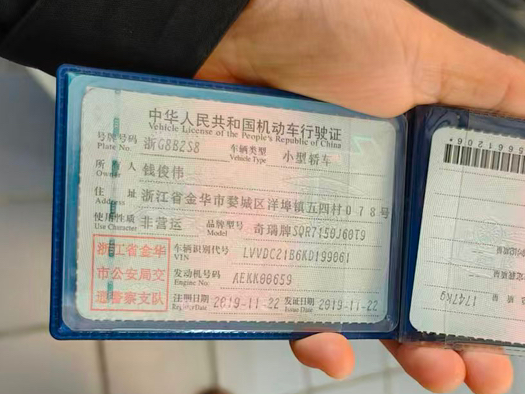 中华人民共和国机动车行驶证
Vehicle License of the People's Republic of China
号牌号码 浙G8B2S8 车辆类型 小型轿车
Plate No. Vehicle Type
所有人 钱俊伟
Owner
住址 浙江省金华市婺城区洋埠镇五四村078号
Address
使用性质 非营运 品牌型号 奇瑞牌SQR7150J60T9
Use Character Model
浙江省金华
市公安局交
通警察支队
车辆识别代号 LVVDC21B6KD199061
VIN
发动机号码 AEKK00659
Engine No.
注册日期 2019-11-22 发证日期 2019-11-22
Register Date Issue Date
1747kg